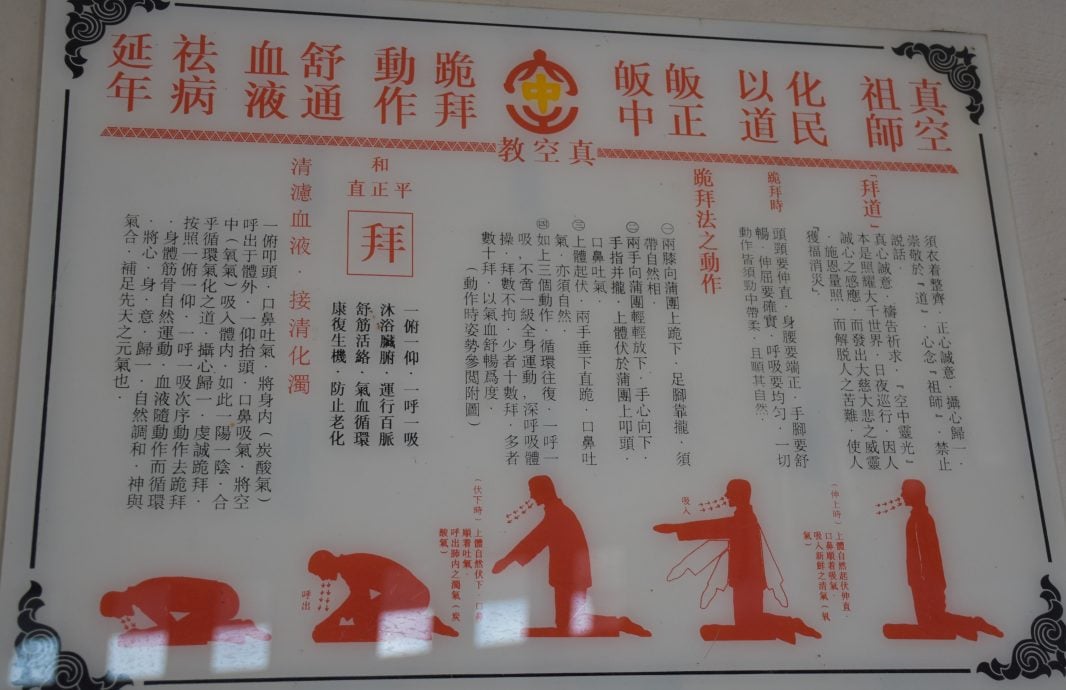 真空祖師
化民以道
皈正皈中
中
真空教
跪拜動作
舒通血液
祛病延年
「拜道」
須衣着整齊．正心誠意．攝心歸一．
崇敬於『道』．心念『祖師』．禁止
說話．
真心誠意．禱告祈求．『空中靈光』
本是照耀大千世界．日夜巡行．因人
誠心之感應．而發出大慈大悲之威靈
．施恩量照．而解脫人之苦難．使人
『獲福消災』．
跪拜時
頭頸要伸直．身腰要端正．手腳要舒
暢．伸屈要確實．呼吸要均勻．一切
動作皆須勁中帶柔．且順其自然．
跪拜法之動作
㊀兩膝向蒲團上跪下．足腳靠攏．須
帶自然相．
㊁兩手向蒲團輕輕放下．手心向下．
手指并攏．上體伏於蒲團上叩頭．
口鼻吐氣．
㊂上體起伏．兩手垂下直跪．口鼻吐
氣．亦須自然．
㊃如上三個動作．循環往復．一呼一
吸．不啻一級全身運動．深呼吸體
操．拜數不拘．少者十數拜．多者
數十拜．以氣血舒暢爲度．
（動作時姿勢參閱附圖）
平正和直
拜
一俯一仰．一呼一吸
沐浴臟腑．運行百脈
舒筋活絡．氣血循環
康復生機．防止老化
清濾血液．接清化濁
一俯叩頭．口鼻吐氣．將身內（炭酸氣）
呼出于體外．一仰抬頭．口鼻吸氣．將空
中（氧氣）吸入體內．如此一陽一陰．合
乎循環氣化之道．攝心歸一．虔誠跪拜．
按照一俯一仰．一呼一吸次序動作去跪拜
．身體筋骨自然運動．血液隨動作而循環
．將心．身．意．歸一．自然調和．神與
氣合．補足先天之元氣也．
（伸上時）
上體自然起伏伸直．
口鼻順着吸氣．
吸入新鮮之清氣（氧
氣）
吸入
（伏下時）
上體自然伏下．口鼻
順着吐氣．
呼出肺內之濁氣（炭
酸氣）
呼出